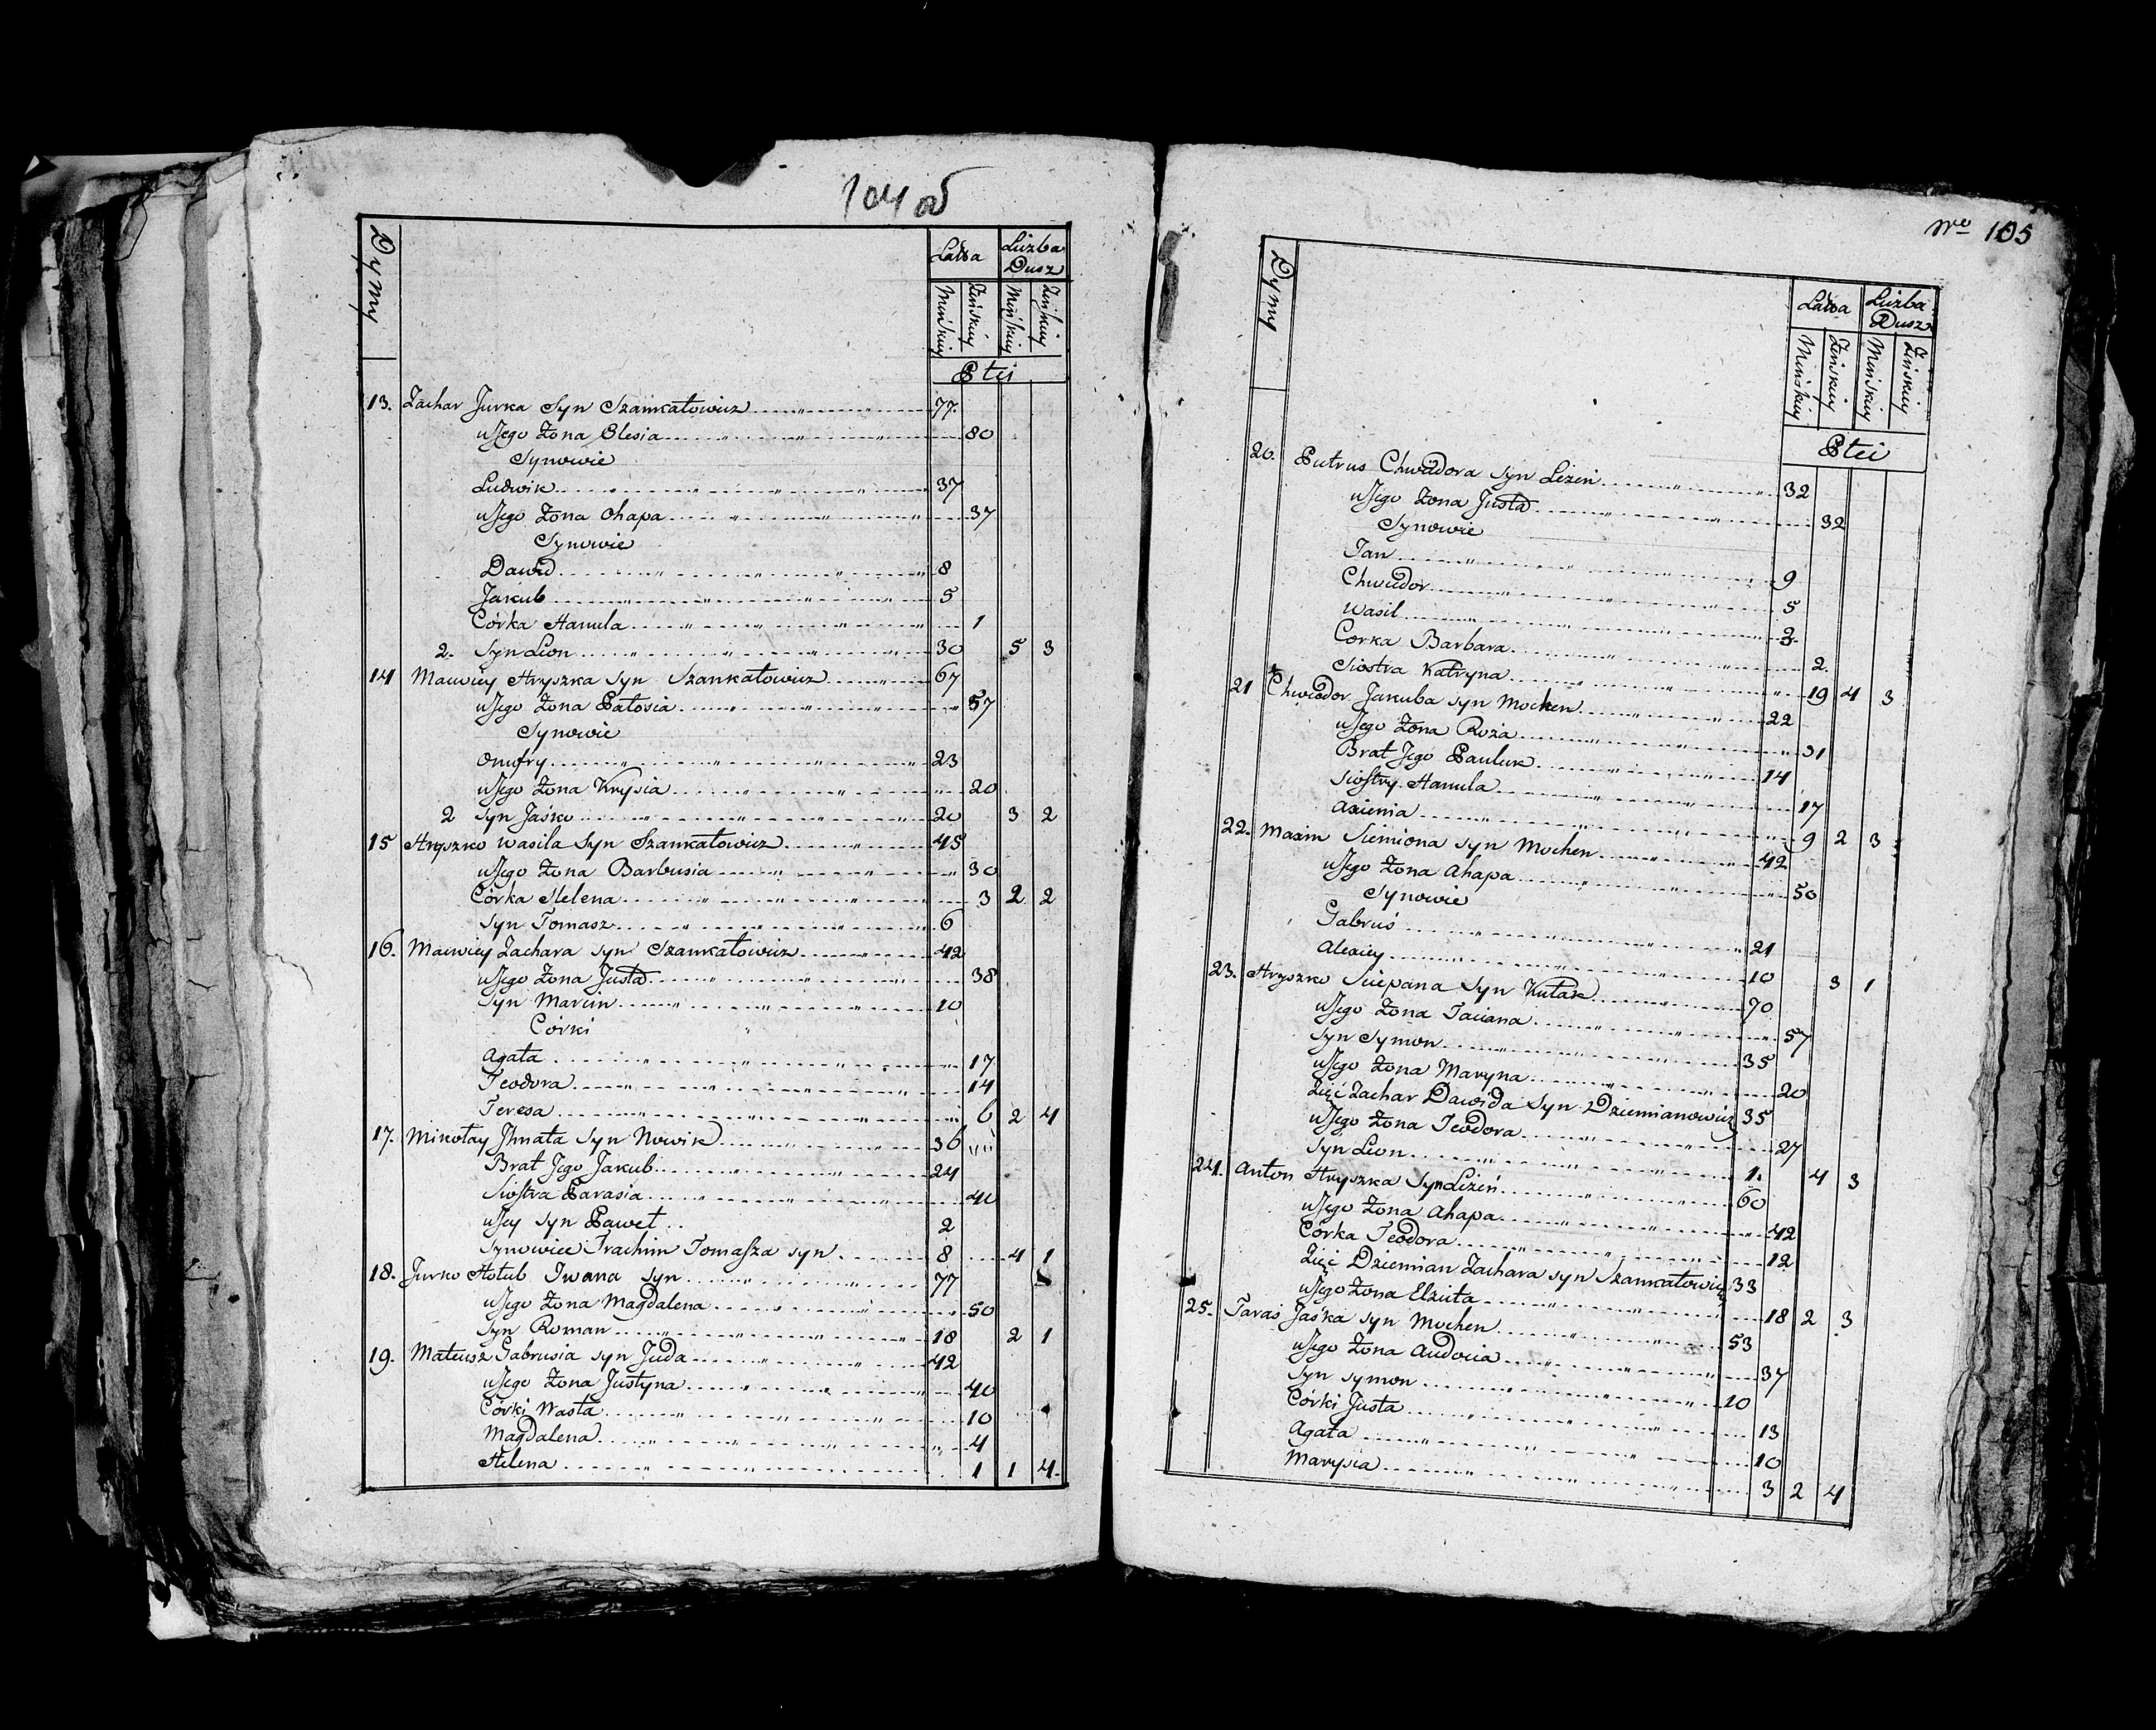 104 об
Dymy
Lata
Liczba Dusz
Męskiey
Żeńskiey
Męskiey
Żeńskiey
Płci
13. Zachar Jurka Syn Szankałowicz 77.
u Jego Żona Olesia 80
Synowie
Ludwik 37
u Jego Żona Ohapa 37
Synowie
Dawid 8
Jakub 5
Córka Hanula 1
2. Syn Leon 30 5 3
14 Maciey Hryszka Syn Szankałowicz 67
u Jego Żona Pałosia 57
Synowie
Onufry 23
u Jego Żona Krysia 20
2 Syn Jaśko 20 3 2
15 Hryszko Wasila Syn Szankałowicz 45
u Jego Żona Barbusia 30
Córka Helena 3 2 2
Syn Tomasz 6
16. Maciey Zachara Syn Szankałowicz 42
u Jego Żona Justa 38
Syn Marcin 10
Córki
Agata 17
Teodora 14
Teresa 6 2 4
17. Mikołay Jhnata Syn Nowik 36
Brat Jego Jakub 24
Siostra Parasia 40
u Jey Syn Paweł 2
Synowiec Trachim Tomasza Syn 8 4 1
18. Jurko Hołub Iwana Syn 77
u Jego Żona Magdalena 50
Syn Roman 18 2 1
19. Mateusz Gabrusia Syn Juda 42
u Jego Żona Justyna 40
Córki Nasta 10
Magdalena 4
Helena 1 1 4.
Nro 105
Dymy
Lata
Liczba Dusz
Męskiey
Żeńskiey
Męskiey
Żeńskiey
Płci
20. Putrus Chwiadora Syn Lizeń 32
u Jego Żona Justa 32
Synowie
Jan 9
Chwiedor 5
Wasil 2.
Corka Barbara 2.
Siostra Katryna 19 4 3
21 Chwiedor Jakuba Syn Mochen 22
u Jego Żona Roża 31
Brat Jego Pauluk 14
Siostry Hanula 17
Axienia 9 2 3
22. Maxim Siemiona Syn Mochen 42
u Jego Żona Ahapa 50
Synowie
Gabruś 21
Alexiey 10 3 1
23. Hryszko Sciepana Syn Kułak 70
u Jego Żona Taciana 57
Syn Symon 35
u Jego Żona Maryna 20
Zięć Zachar Dawida Syn Dziemianowicz 35
u Jego Żona Teodora 27
Syn Leon 1. 4 3
24. Anton Hryszka Syn Lizeń 60
u Jego Żona Ahapa 42
Córka Teodora 12
Zięć Dziemian Zachara Syn Szankałowicz 33
u Jego Żona Elżuta 18 2 3
25. Taraś Jaśka Syn Mochen 53
u Jego Żona Audocia 37
Syn Symon 10
Córki Justa 13
Agata 10
Marysia 3 2 4